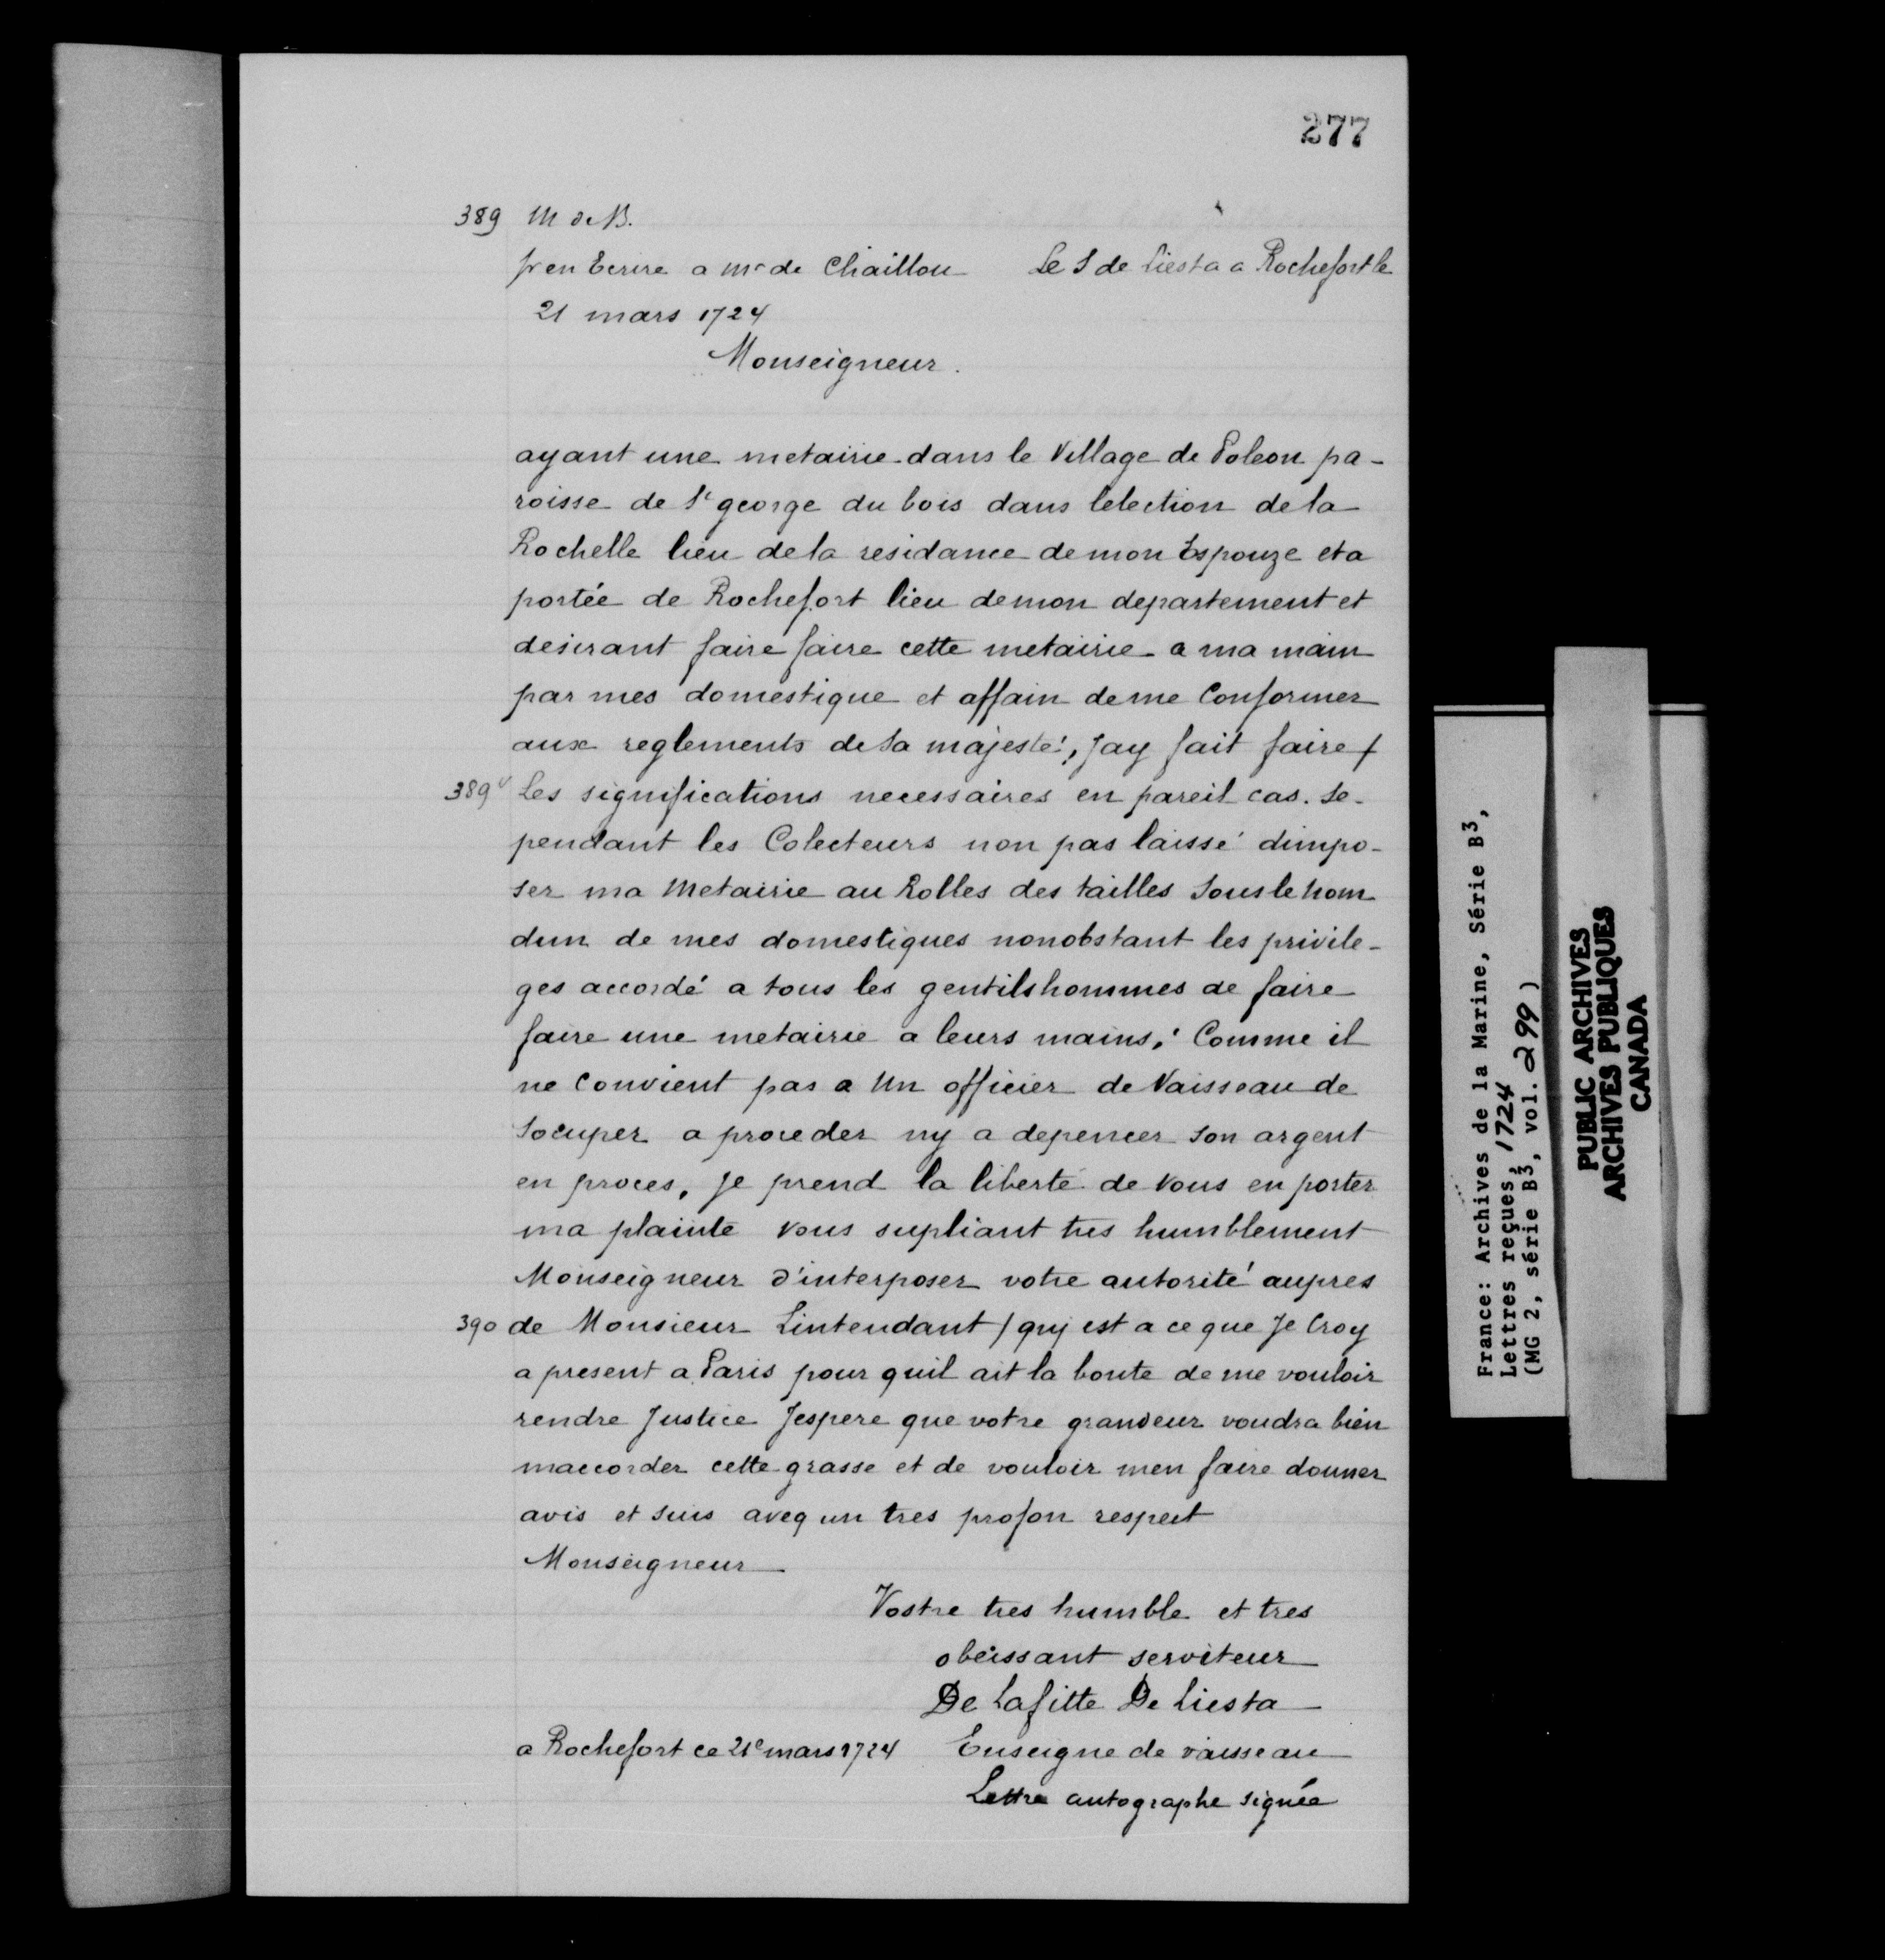 277
389 M de B.
pr en Ecrire a mr de Chaillou Le S de Liesta a Rochefort le
21 mars 1724
Monseigneur.
ayant une metairie dans le Village de Poleon pa-
roisse de St george du bois dans lelection de la
Rochelle lieu de la residance de mon Espouze et a
portée de Rochefort lieu de mon departement et
desirant faire faire cette metairie a ma main
par mes domestique et affain de me Conformer
aux reglements de Sa majesté, Jay fait faire /
389v Les significations necessaires en pareil cas. Se-
pendant les Colecteurs non pas laissé dimpo-
ser ma Metairie au Rolles des tailles Sous le Nom
dun de mes domestiques nonobstant les privile-
ges accordé a tous les gentilshommes de faire
faire une metairie a leurs mains, Comme il
ne Convient pas a Un officier de Vaisseau de
Socuper a proceder ny a depencer Son argent
en proces, Je prend la liberté de Vous en porter
ma plainte vous supliant tres humblement
Monseigneur d'interposer votre autorité aupres
390 de Monsieur Lintendant / quy est a ce que Je Croy
a present a Paris pour quil ait la bonte de me vouloir
rendre Justice Jespere que votre grandeur voudra bien
maccorder cette grasse et de vouloir men faire donner
avis et suis aveq un tres profon respect
Monseigneur
Vostre tres humble et tres
obeissant serviteur
De Lafitte De Liesta
a Rochefort ce 21e mars 1724 Enseigne de vaisseau
Lettre autographe signée
France: Archives de la Marine, Série B3,
Lettres reçues, 1724
(MG 2, série B3, vol. 299)
PUBLIC ARCHIVES
ARCHIVES PUBLIQUES
CANADA